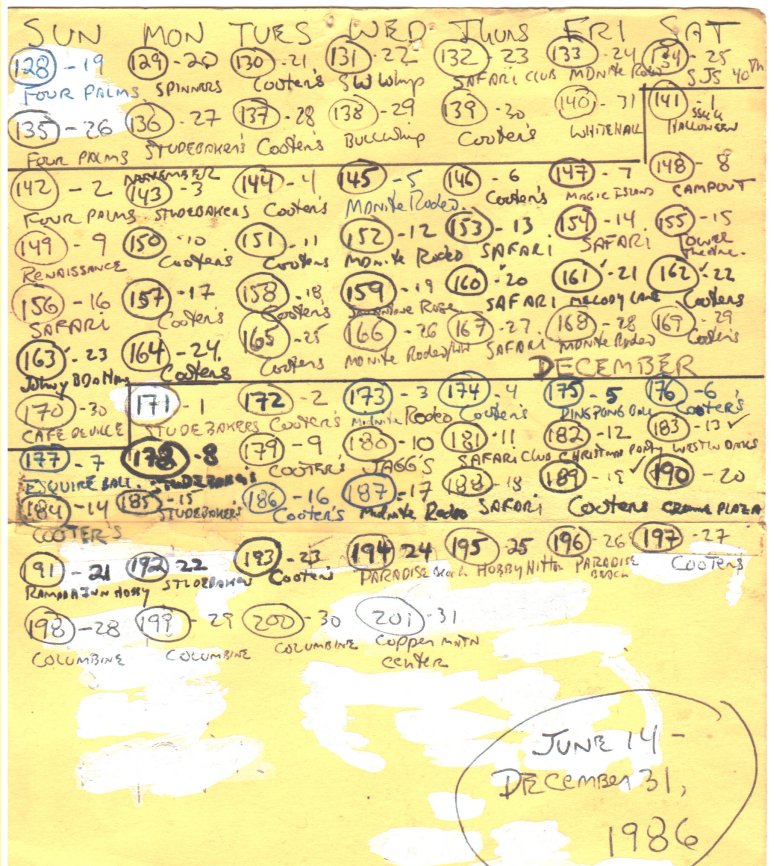 SUN MON TUES WED Thurs FRI SAT
128 - 19 129 - 20 130 - 21 131 - 22 132 - 23 133 - 24 134 - 25
FOUR PALMS SPINNERS Cooter's SW Whip SAFARI CLUB MDNite Rodeo SJS 40th
135 - 26 136 - 27 137 - 28 138 - 29 139 - 30 140 - 31 141 - 1
FOUR PALMS STUDEBAKERS Cooter's BULLWhip Cooter's WHITEHALL HALLOWEEN
NOVEMBER
142 - 2 143 - 3 144 - 4 145 - 5 146 - 6 147 - 7 148 - 8
FOUR PALMS STUDEBAKERS Cooter's MDNite Rodeo Cooter's MAGIC ISLAND CAMPOUT
149 - 9 150 - 10 151 - 11 152 - 12 153 - 13 154 - 14 155 - 15
RENAISSANCE Cooter's Cooters MDNite Rodeo SAFARI SAFARI TOWER Theatre
156 - 16 157 - 17 158 - 18 159 - 19 160 - 20 161 - 21 162 - 22
SAFARI Cooter's Cooter's Rose SAFARI MELODY LANE Cooters
163 - 23 164 - 24 165 - 25 166 - 26 167 - 27 168 - 28 169 - 29
Johny B Cooters Cooters MDNite Rodeo SAFARI MDNite Rodeo Cooters
DECEMBER
170 - 30 171 - 1 172 - 2 173 - 3 174 - 4 175 - 5 176 - 6
CAFE DEVILLE STUDEBAKERS Cooter's Midnite Rodeo Cooter's PING PONG Cooter's
177 - 7 178 - 8 179 - 9 180 - 10 181 - 11 182 - 12 183 - 13
ESQUIRE BALL STUDEBAKERS COOTER'S JAGG'S SAFARI CLUB CHRISTMAS PARTY WESTIN OAKS
184 - 14 185 - 15 186 - 16 187 - 17 188 - 18 189 - 19 190 - 20
COOTER'S STUDEBAKERS Cooter's MDNite Rodeo SAFARI Cooters CROWNE PLAZA
191 - 21 192 - 22 193 - 23 194 - 24 195 - 25 196 - 26 197 - 27
RAMADA INN HOBBY STUDEBAKERS Cooters PARADISE Beach HOBBY Hilton PARADISE BEACH COOTERS
198 - 28 199 - 29 200 - 30 201 - 31
COLUMBINE COLUMBINE COLUMBINE Copper MNTN
Center
JUNE 14 -
DECEMBER 31,
1986